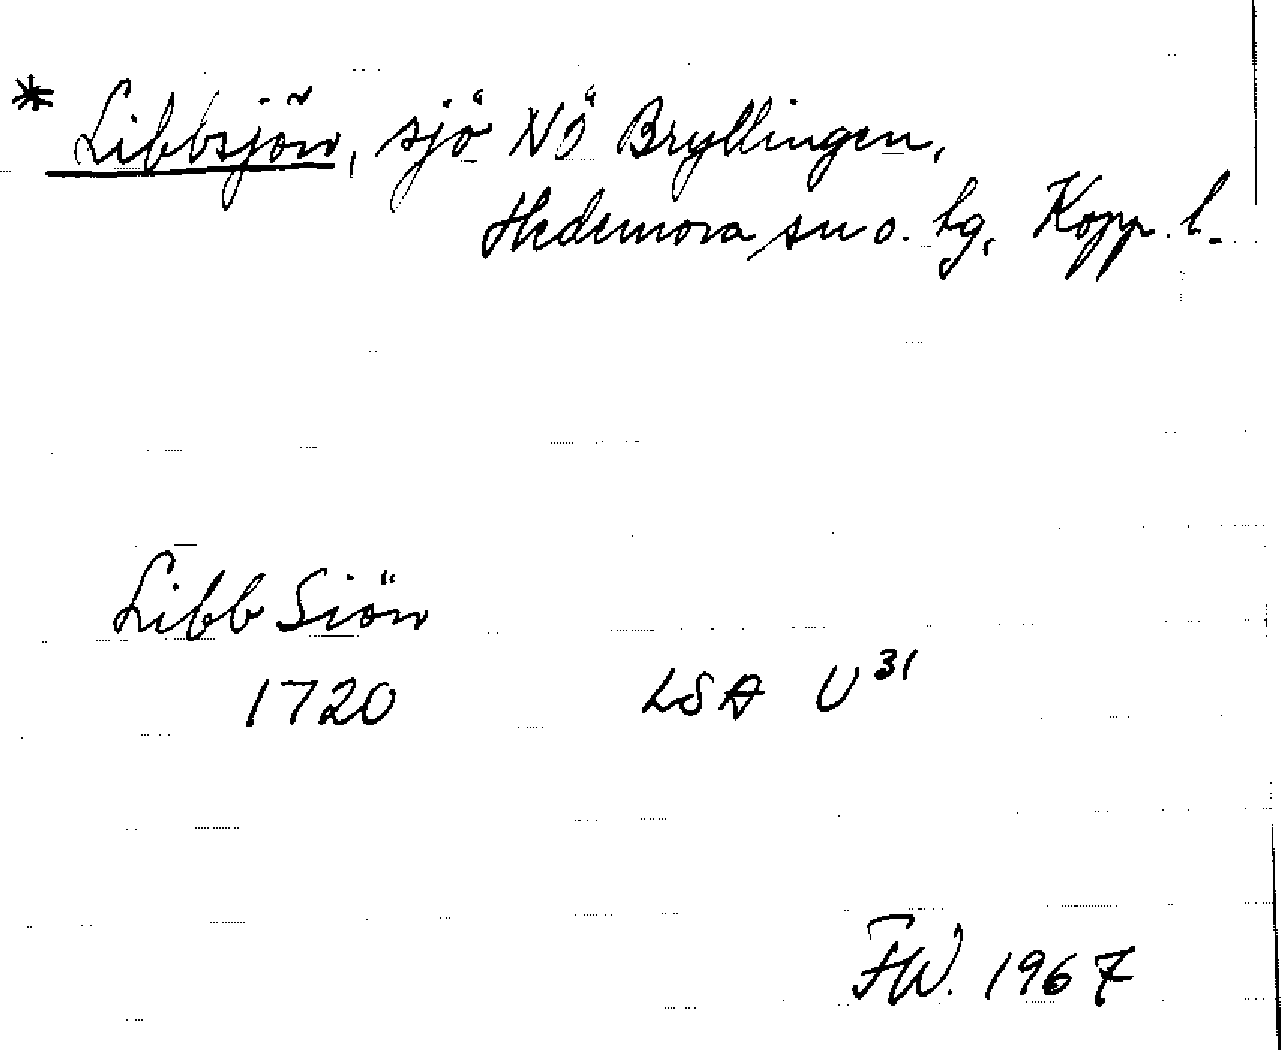 * Libbsjön, sjö NÖ Bryllingen,
Hedemora sn o. hg, Kopp. l.
Libb Siön
1720 LSA U31
FW. 1967